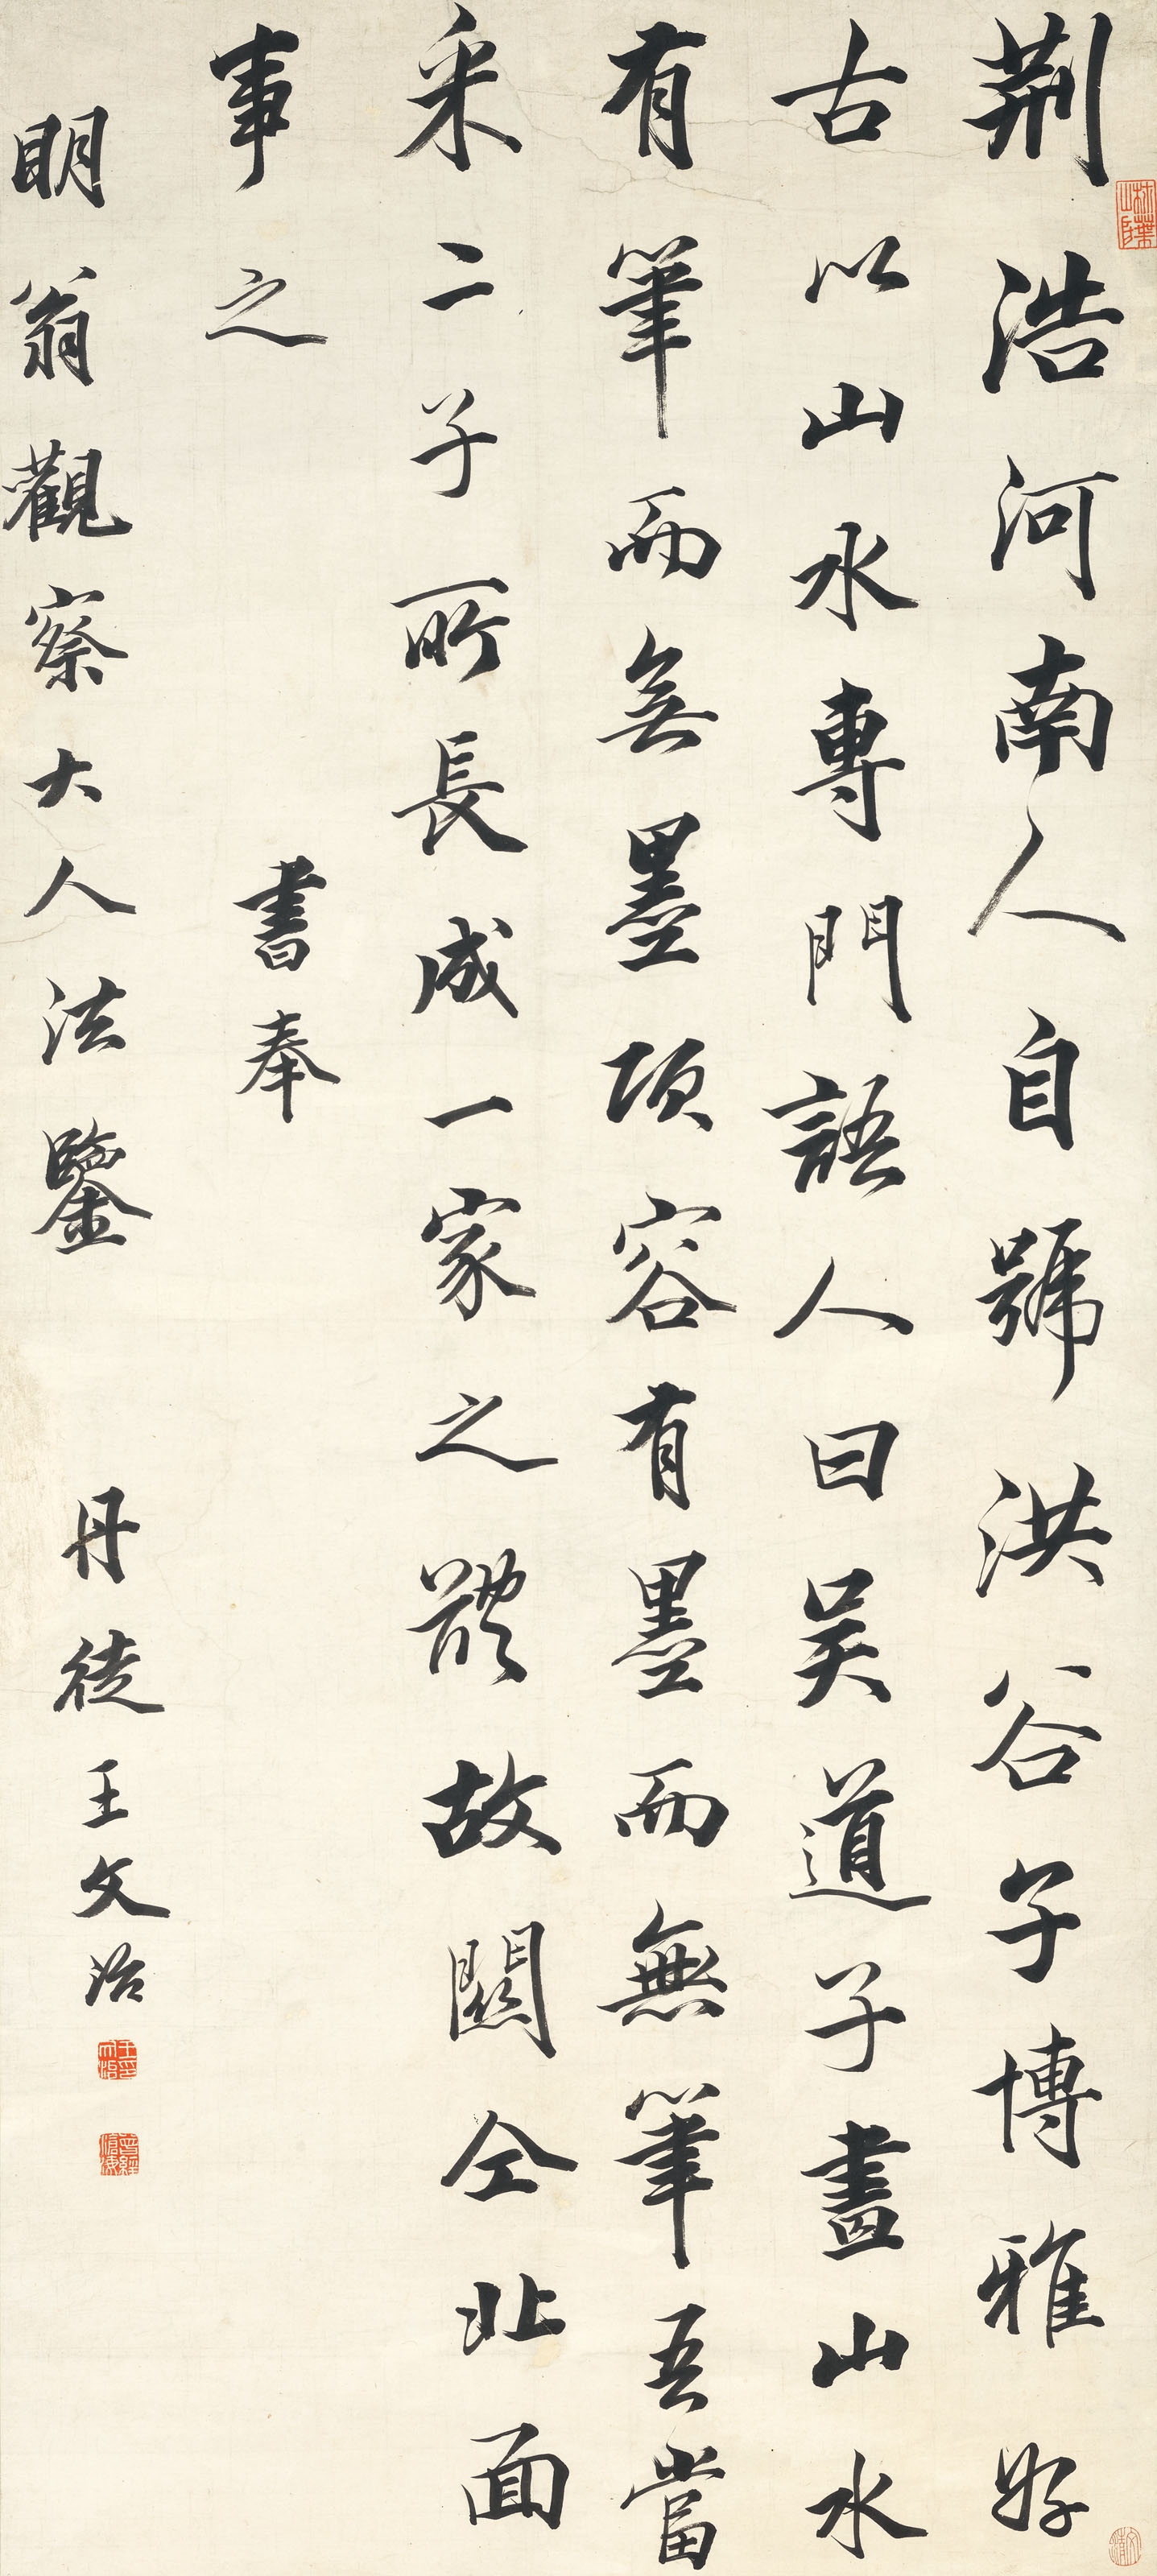 荆浩河南人自號洪谷子博雅好
古以山水專門語人曰吴道子畫山水
有筆而無墨項容有墨而無筆吾當
采二子所長成一家之體故關仝北面
事之
書奉
明翁觀察大人法鑒
丹徒王文治
王文治印
曾經滄海